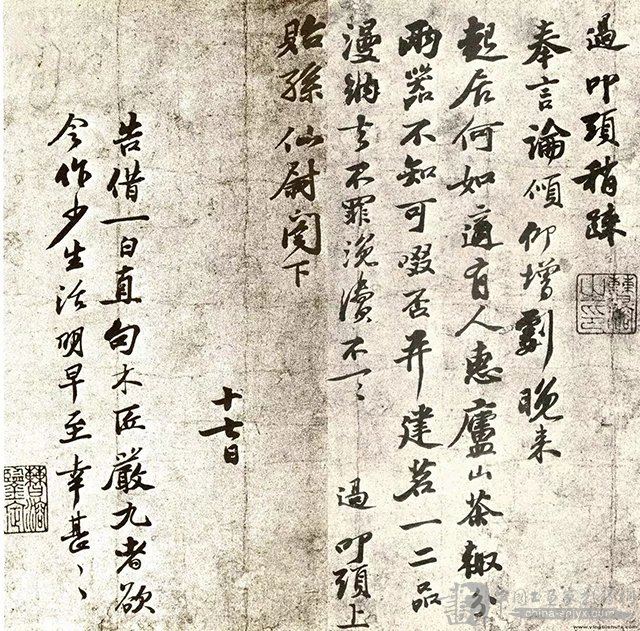 過叩頭稍踈
奉言論傾仰增劇晚来
起居何如適有人惠廬山茶輙分
兩器不知可啜否并建茗一二品
漫納去不罪浼瀆不一〻 過叩頭上
貽孫仙尉閤下
十七日
告借一白直句木匠嚴九者欲
令作少生活明早至幸甚〻
www.yingbishufa.com